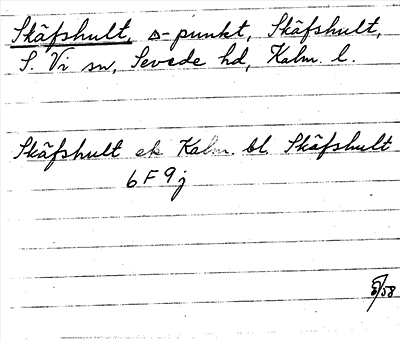 Skäfshult, △-punkt, Skäfshult,
S. Vi sn, Sevede hd, Kalm. l.
Skäfshult ek Kalm. bl Skäfshult
6 F 9 j
/58